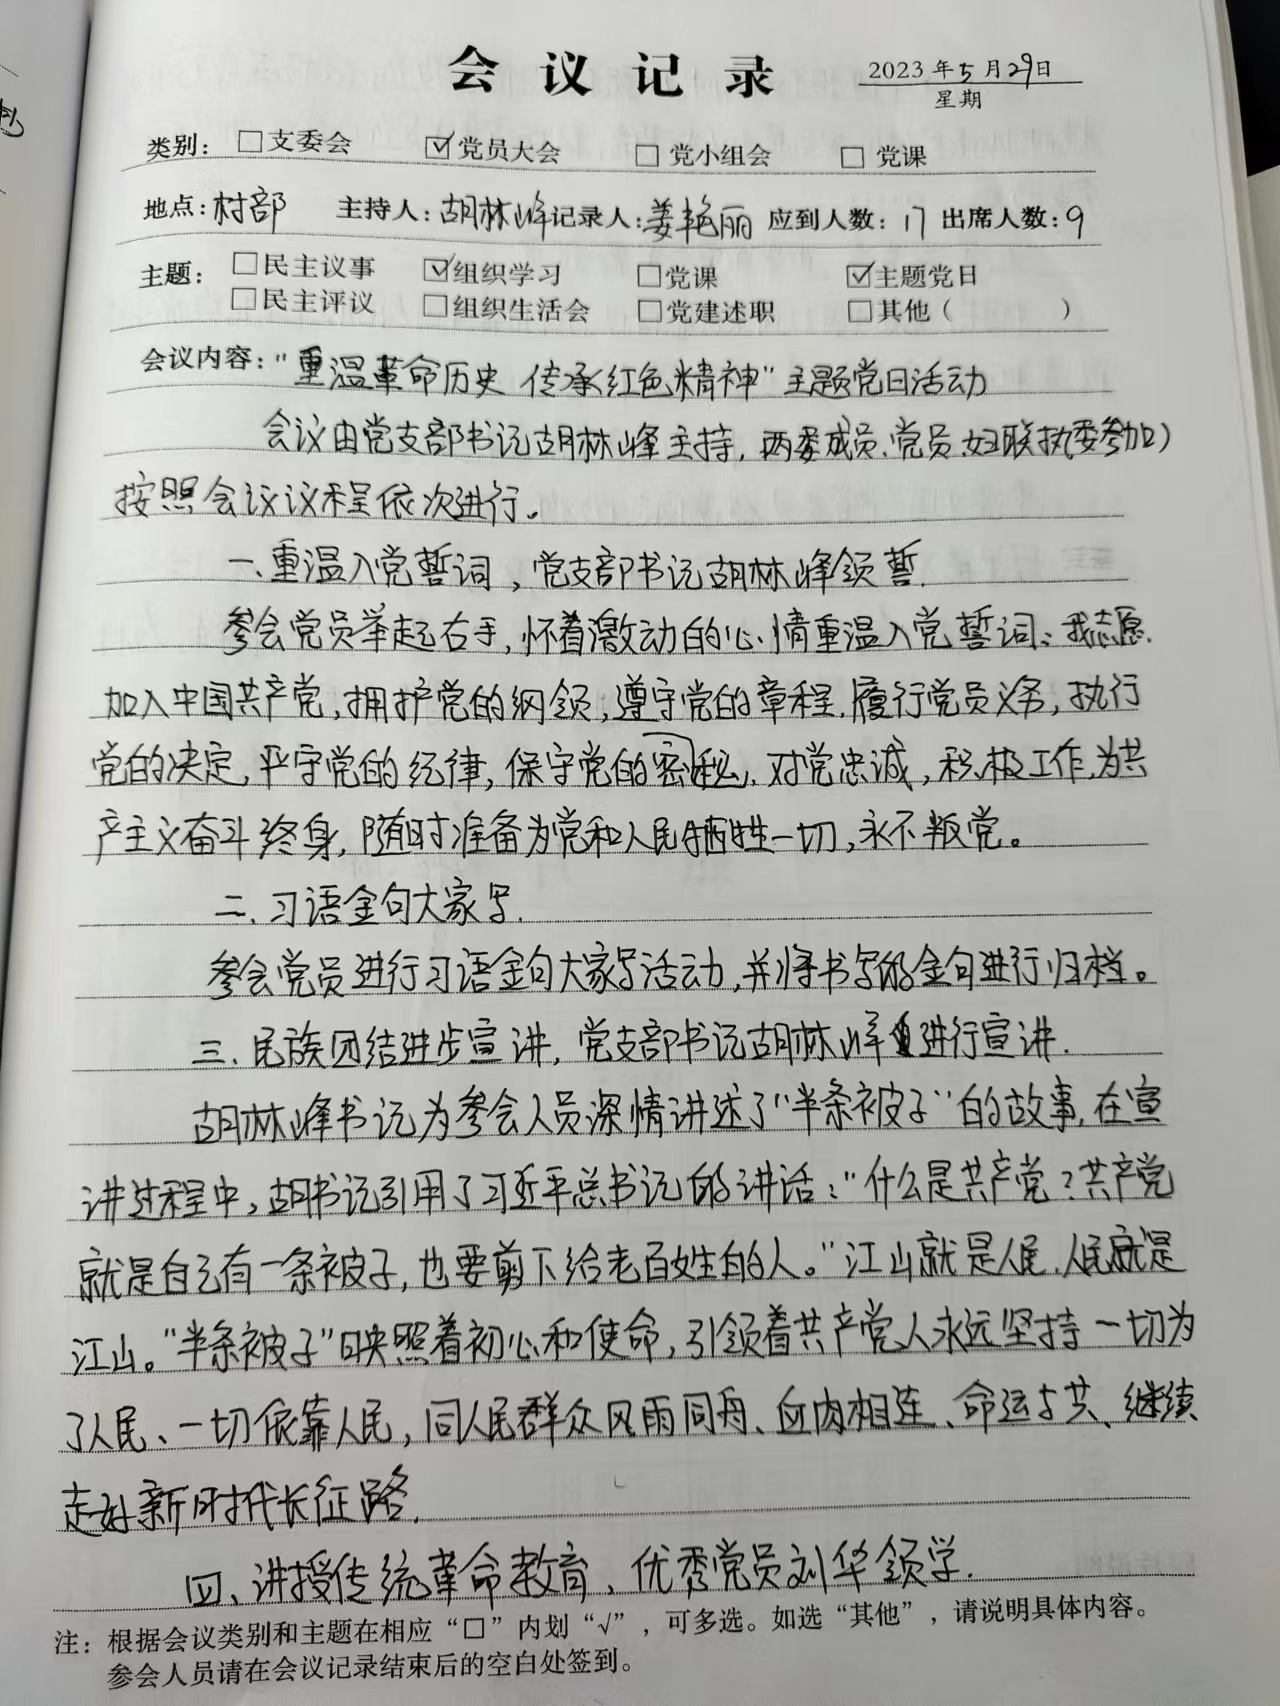 会议记录
2023年5月29日
星期
类别：□支委会 ☑党员大会 □党小组会 □党课
地点：村部 主持人：胡林峰 记录人：姜艳丽 应到人数：17 出席人数：9
主题：□民主议事 ☑组织学习 □党课 ☑主题党日
□民主评议 □组织生活会 □党建述职 □其他（ ）
会议内容："重温革命历史 传承红色精神"主题党日活动
会议由党支部书记胡林峰主持，两委成员、党员、妇联执委参加）
按照会议议程依次进行。
一、重温入党誓词，党支部书记胡林峰领誓.
参会党员举起右手，怀着激动的心情重温入党誓词：我志愿
加入中国共产党，拥护党的纲领，遵守党的章程，履行党员义务，执行
党的决定，严守党的纪律，保守党的密秘，对党忠诚，积极工作，为共
产主义奋斗终身，随时准备为党和人民牺牲一切，永不叛党。
二、习语金句大家写.
参会党员进行习语金句大家写活动，并将书写的金句进行归档。
三、民族团结进步宣讲，党支部书记胡林峰进行宣讲.
胡林峰书记为参会人员深情讲述了"半条被子"的故事，在宣
讲过程中，胡书记引用了习近平总书记的讲话："什么是共产党？共产党
就是自己有一条被子，也要剪下给老百姓的人。"江山就是人民，人民就是
江山。"半条被子"映照着初心和使命，引领着共产党人永远坚持一切为
了人民、一切依靠人民，同人民群众风雨同舟、血肉相连、命运与共、继续
走好新时代长征路.
四、讲授传统革命教育，优秀党员刘华领学.
注：根据会议类别和主题在相应"□"内划"√"，可多选。如选"其他"，请说明具体内容。
参会人员请在会议记录结束后的空白处签到。